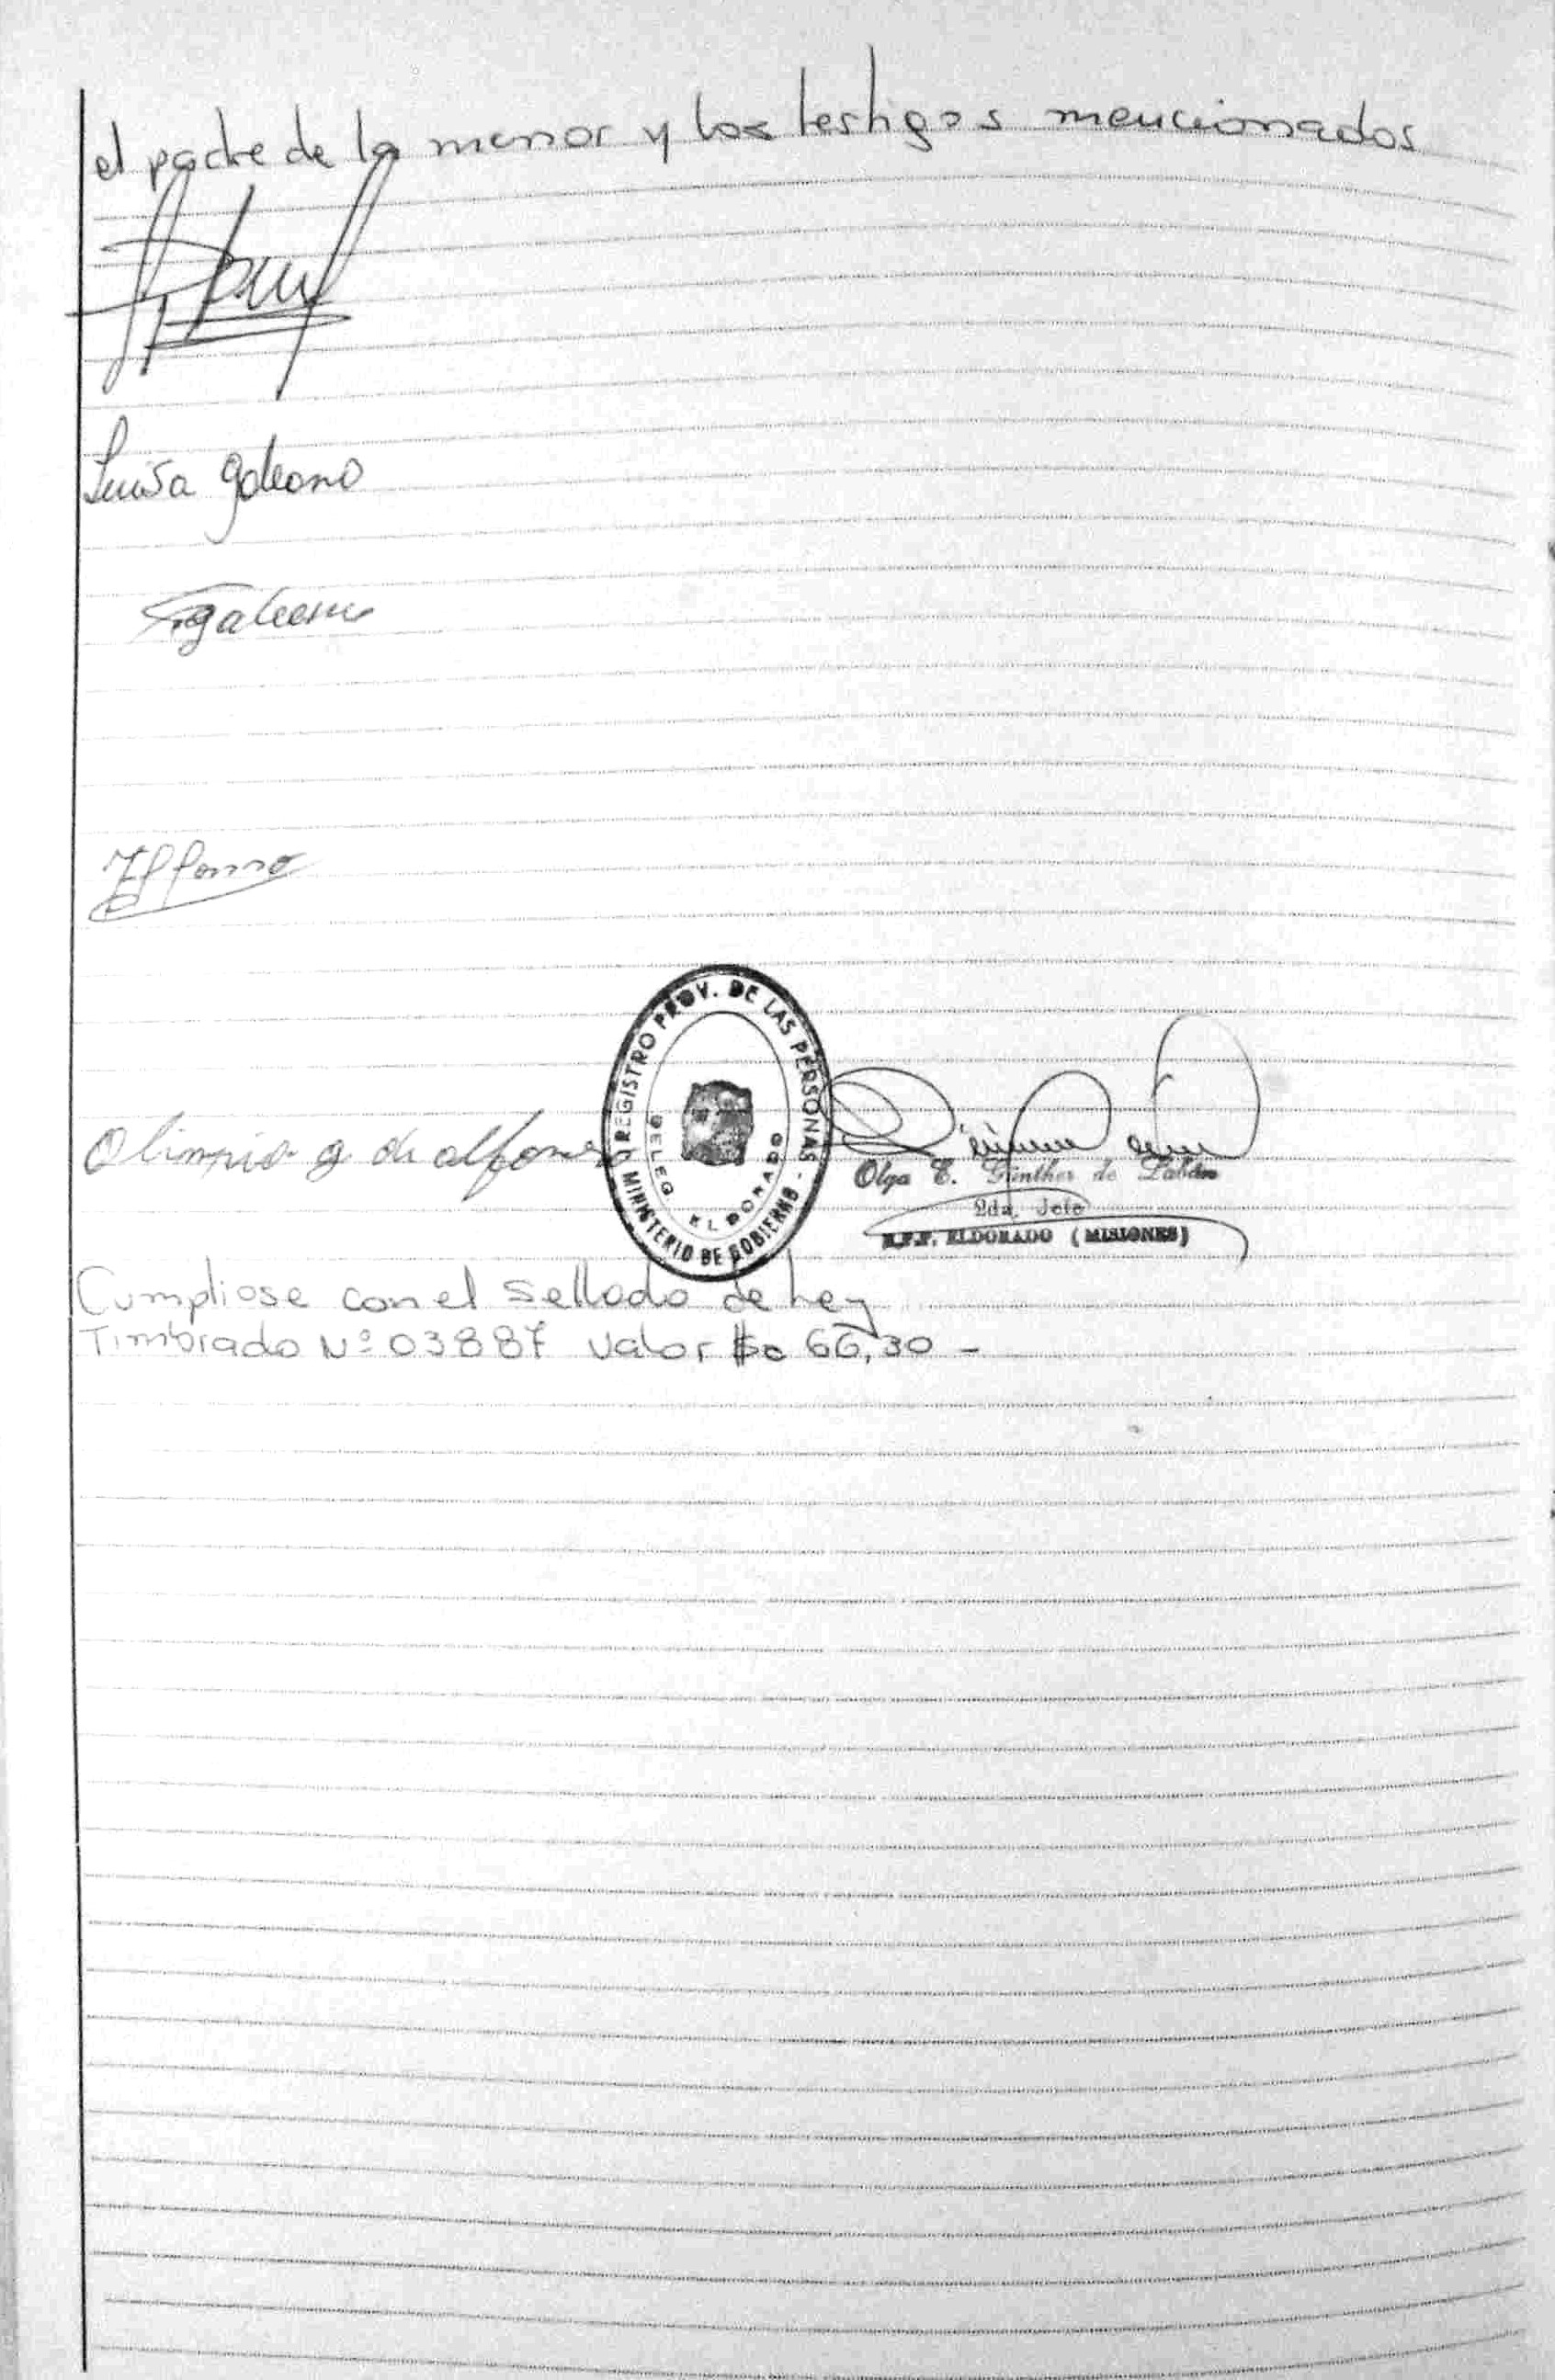 el padre de la menor y los testigos mencionados
Luisa galeano
galeano
Alfonso
Olimpia g de alfonso
REGISTRO PROV. DE LAS PERSONAS - MINISTERIO DE GOBIERNO
DELEG. ELDORADO
Olga E. Günther de
2da. Jefe
R.P.P. ELDORADO (MISIONES)
Cumpliose con el Sellado de Ley
Timbrado Nº 03887 Valor $ 66,30 -